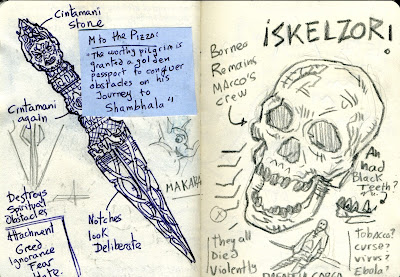 Cintamani
stone
M to the Pizzo:
"The worthy pilgrim is
granted a golden
passport to conquer
obstacles on his
Journey to
Shambhala"
Cintamani
again
MAKARA
Destroys
Spiritual
Obstacles
Attachment
Greed
Ignorance
Fear
Hate
Notches
look
Deliberate
¡SKELZOR!
Borneo
Remains
MARCO's
crew
All
had
Black
Teeth?
they all
Died
Violently
Tobacco?
curse?
virus?
Ebola?